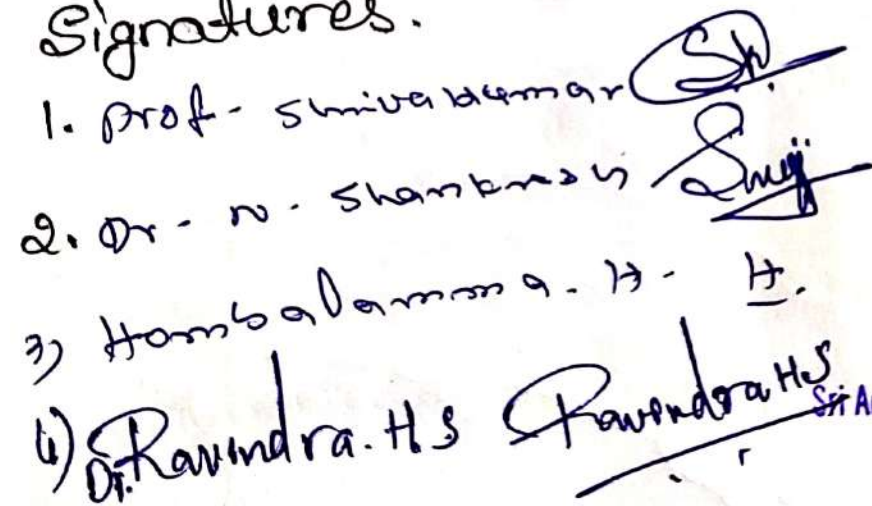 Signatures.
1. Prof - Shivakumar
2. Dr - N - Shankar
3) Hombalamma. H - H.
4) Dr. Ravindra. H S Ravindra H S
Sri A